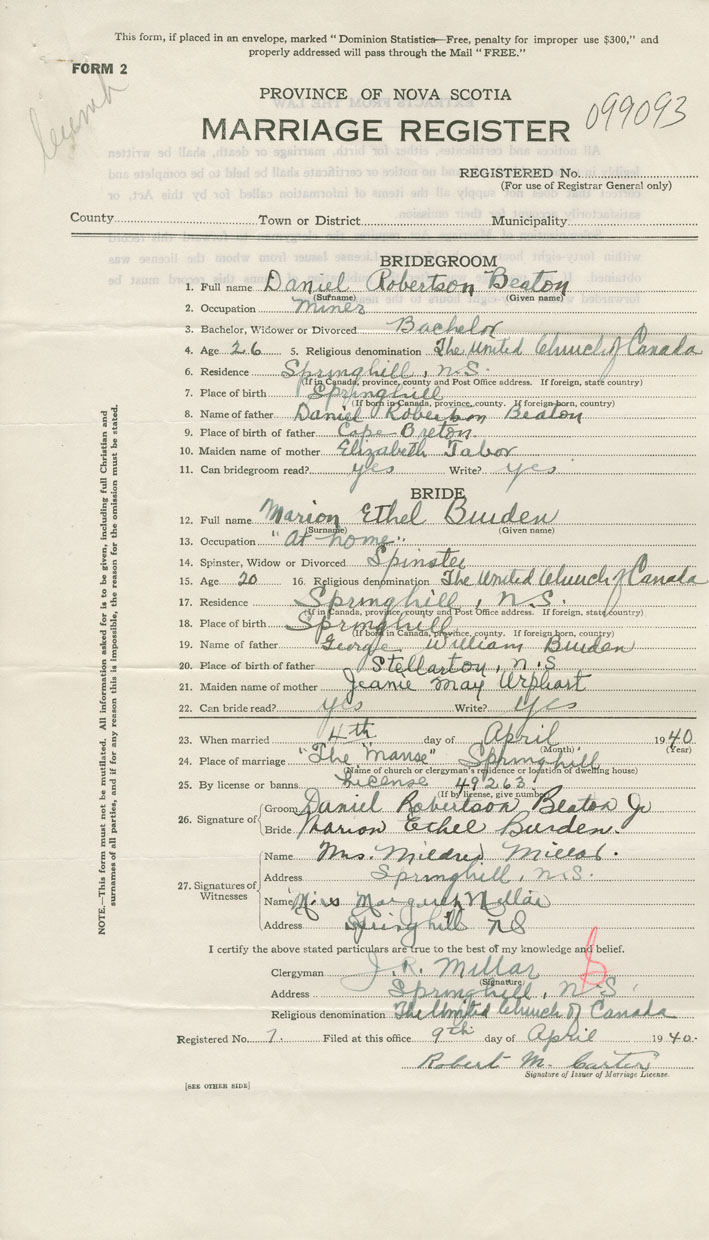 This form, if placed in an envelope, marked "Dominion Statistics—Free, penalty for improper use $300," and
properly addressed will pass through the Mail "FREE."
FORM 2
PROVINCE OF NOVA SCOTIA
MARRIAGE REGISTER 099093
REGISTERED No.
(For use of Registrar General only)
County Town or District Municipality
BRIDEGROOM
1. Full name Daniel Robertson Beaton
(Surname) (Given name)
2. Occupation Miner
3. Bachelor, Widower or Divorced Bachelor
4. Age 26 5. Religious denomination The United Church of Canada
6. Residence Springhill, N.S.
(If in Canada, province, county and Post Office address. If foreign, state country)
7. Place of birth Springhill
(If born in Canada, province, county. If foreign born, country)
8. Name of father Daniel Robertson Beaton
9. Place of birth of father Cape Breton
10. Maiden name of mother Elizabeth Tabor
11. Can bridegroom read? yes Write? yes
BRIDE
12. Full name Marion Ethel Burden
(Surname) (Given name)
13. Occupation "At home"
14. Spinster, Widow or Divorced Spinster
15. Age 20 16. Religious denomination The United Church of Canada
17. Residence Springhill, N.S.
(If in Canada, province, county and Post Office address. If foreign, state country)
18. Place of birth Springhill
(If born in Canada, province, county. If foreign born, country)
19. Name of father George William Burden
20. Place of birth of father Stellarton, N.S
21. Maiden name of mother Jeanie May Urphart
22. Can bride read? yes Write? yes
23. When married 4th day of April 1940
(Month) (Year)
24. Place of marriage "The Manse" Springhill
(Name of church or clergyman's residence or location of dwelling house)
25. By license or banns License 49263
(If by license, give number)
26. Signature of Groom Daniel Robertson Beaton Jr
Bride Marion Ethel Burden.
27. Signatures of Witnesses
Name Mrs. Mildred Millar.
Address Springhill, N.S.
Name Miss Margaret Millar
Address Springhill NS
I certify the above stated particulars are true to the best of my knowledge and belief.
Clergyman J. R. Millar
(Signature)
Address Springhill, N.S.
Religious denomination The United Church of Canada
Registered No. 7. Filed at this office 9th day of April 1940.
Robert M. Carter
Signature of Issuer of Marriage License.
[SEE OTHER SIDE]
NOTE.—This form must not be mutilated. All information asked for is to be given, including full Christian and
surnames of all parties, and if for any reason this is impossible, the reason for the omission must be stated.